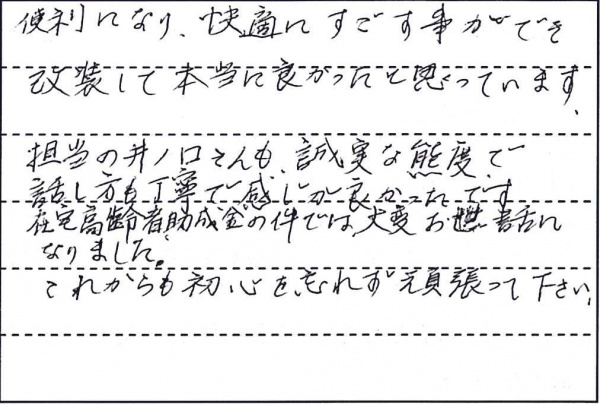 便利になり、快適にすごす事ができ
改装して本当に良かったと思っています、
担当の井ノ口さんも、誠実な態度で
話し方も丁寧で感じが良かったです
在宅高齢者助成金の件では、大変お世話に
なりました。
これからも初心を忘れず頑張って下さい、